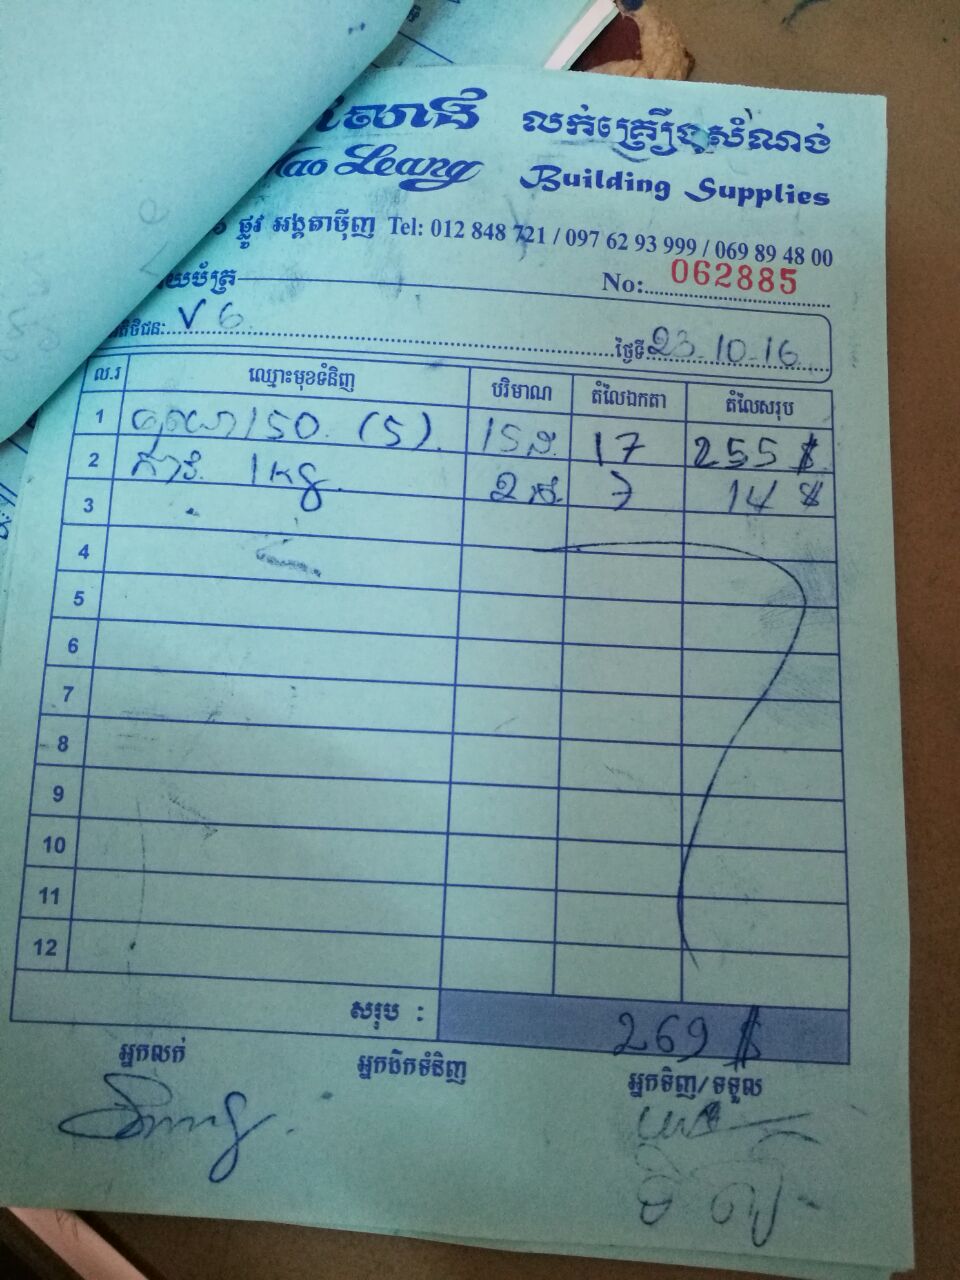 លក់គ្រឿងសំណង់
Tao Leang Building Supplies
ផ្លូវ អង្គតាម៉ិញ Tel: 012 848 721 / 097 62 93 999 / 069 89 48 00
No: 062885
V 6
ថ្ងៃទី 23-10-16
ល.រ ឈ្មោះមុខទំនិញ បរិមាណ តំលៃឯកតា តំលៃសរុប
1 150 (5). 15 ដ. 17 255 $
2 កាវ 1kg 2 7 14 $
3
4
5
6
7
8
9
10
11
12
សរុប : 269 $
អ្នកលក់ អ្នកដឹកទំនិញ អ្នកទិញ/ទទួល